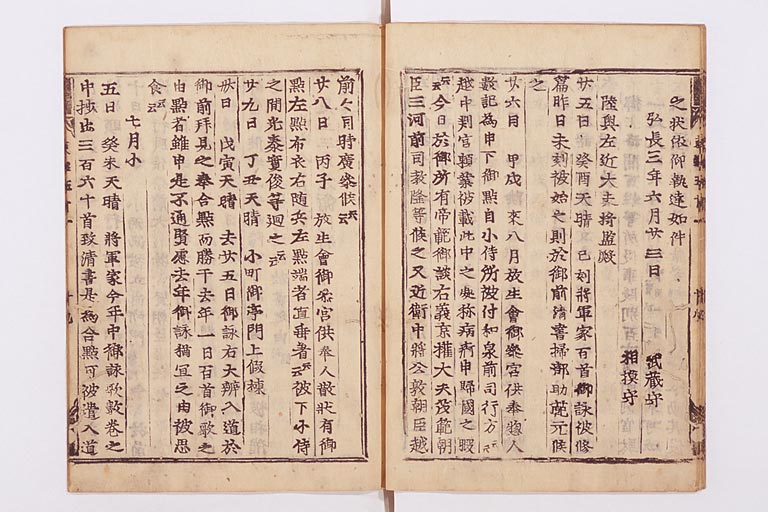 之状依仰執達如件
弘長三年六月廿三日
武蔵守
相摸守
陸奥左近大夫将監殿
廿五日 癸酉天晴 已刻将軍家百首御詠被修
篇昨日未刻被始之則於御前清書掃部助範元候
之
廿六日 甲戌 来八月放生會御参宮供奉惣人
數記為申下御點自小侍所被付和泉前司行方云云
越中判官頼業被載此中之處称病痾申帰國之暇
云云今日於御所有帝範御談右義京権大夫茂範朝
臣三河前司教隆等候之又近衛中将公敦朝臣越
前〻司時廣参候云云
廿八日 丙子 放生會御参宮供奉人散状有御
點左點布衣右随兵左點端者直垂者云云彼下小侍
之間光泰實俊等廻之云云
廿九日 丁丑天晴 小町御亭門上假棟
卅日 戊寅天晴 去廿五日御詠右大辨入道於
御前拜見之奉合點而勝于去年一日百首御歌之
由點者雖申是不通賢慮去年御詠猶宜之由被思
食云云
七月小
五日 癸未天晴 将軍家今年中御詠歌數巻之
中抄出三百六十首致清書是為合點可被遣入道